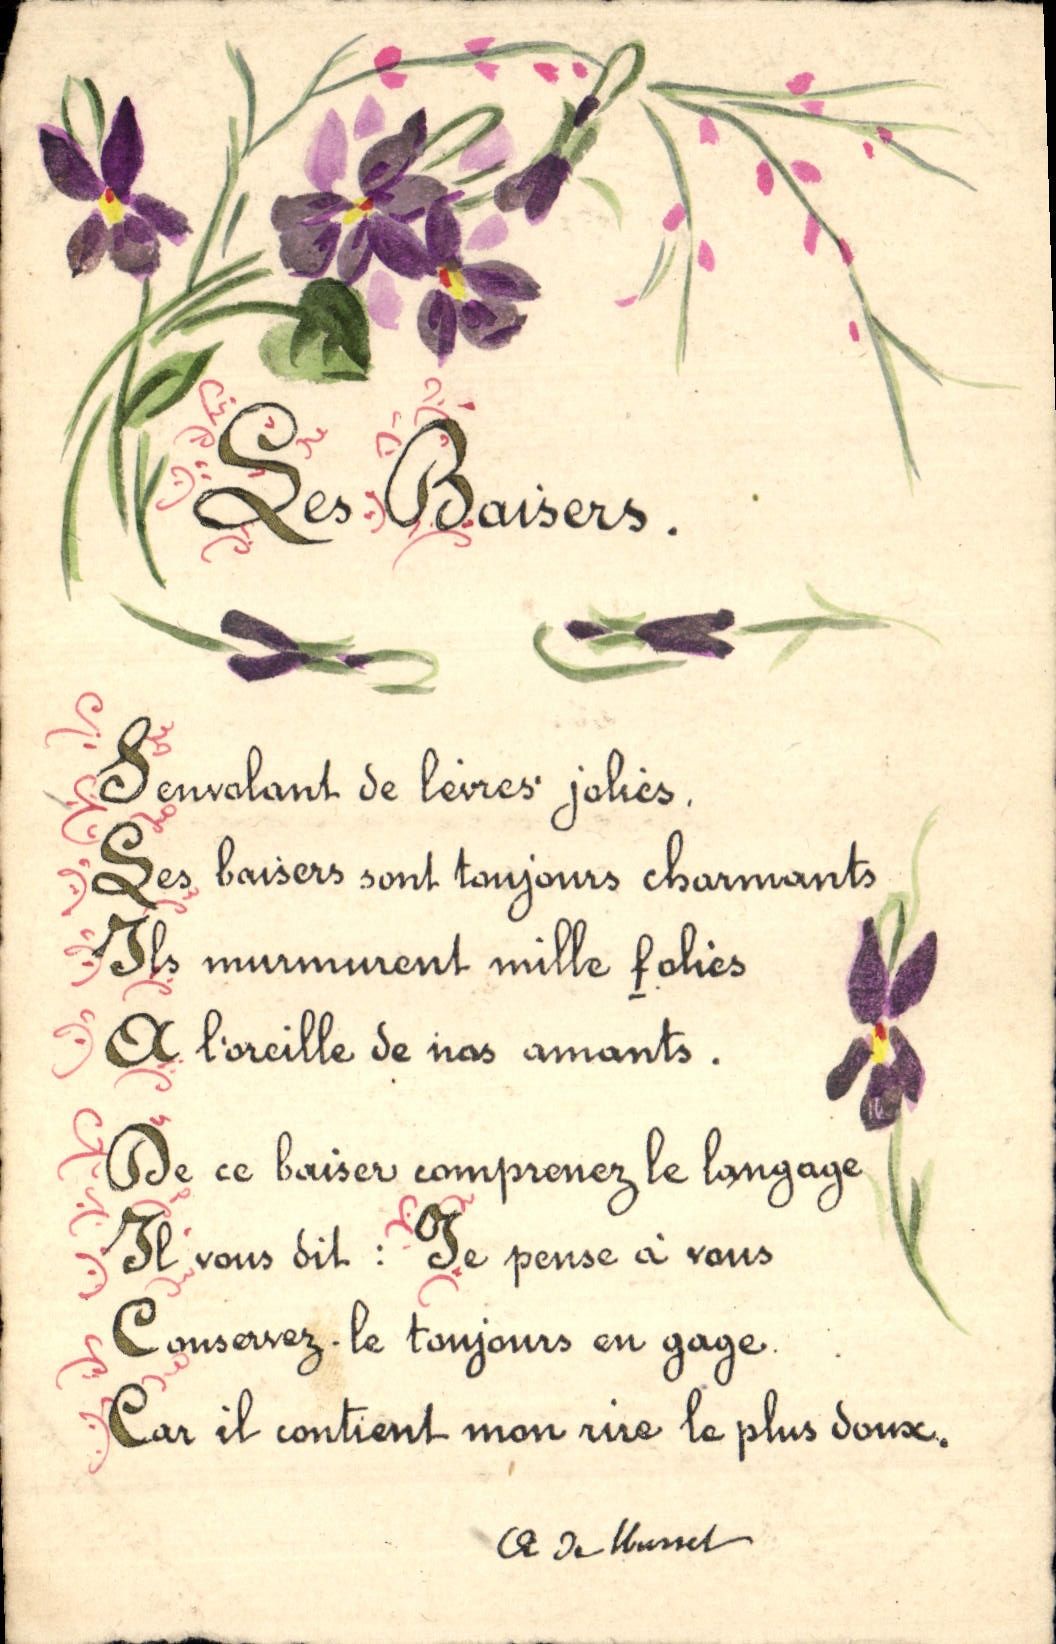 Les Baisers.
S'envolant de lèvres jolies.
Les baisers sont toujours charmants
Ils murmurent mille folies
A l'oreille de nos amants.
De ce baiser comprenez le langage
Il vous dit : Je pense à vous
Conservez-le toujours en gage.
Car il contient mon rire le plus doux.
A de Musset